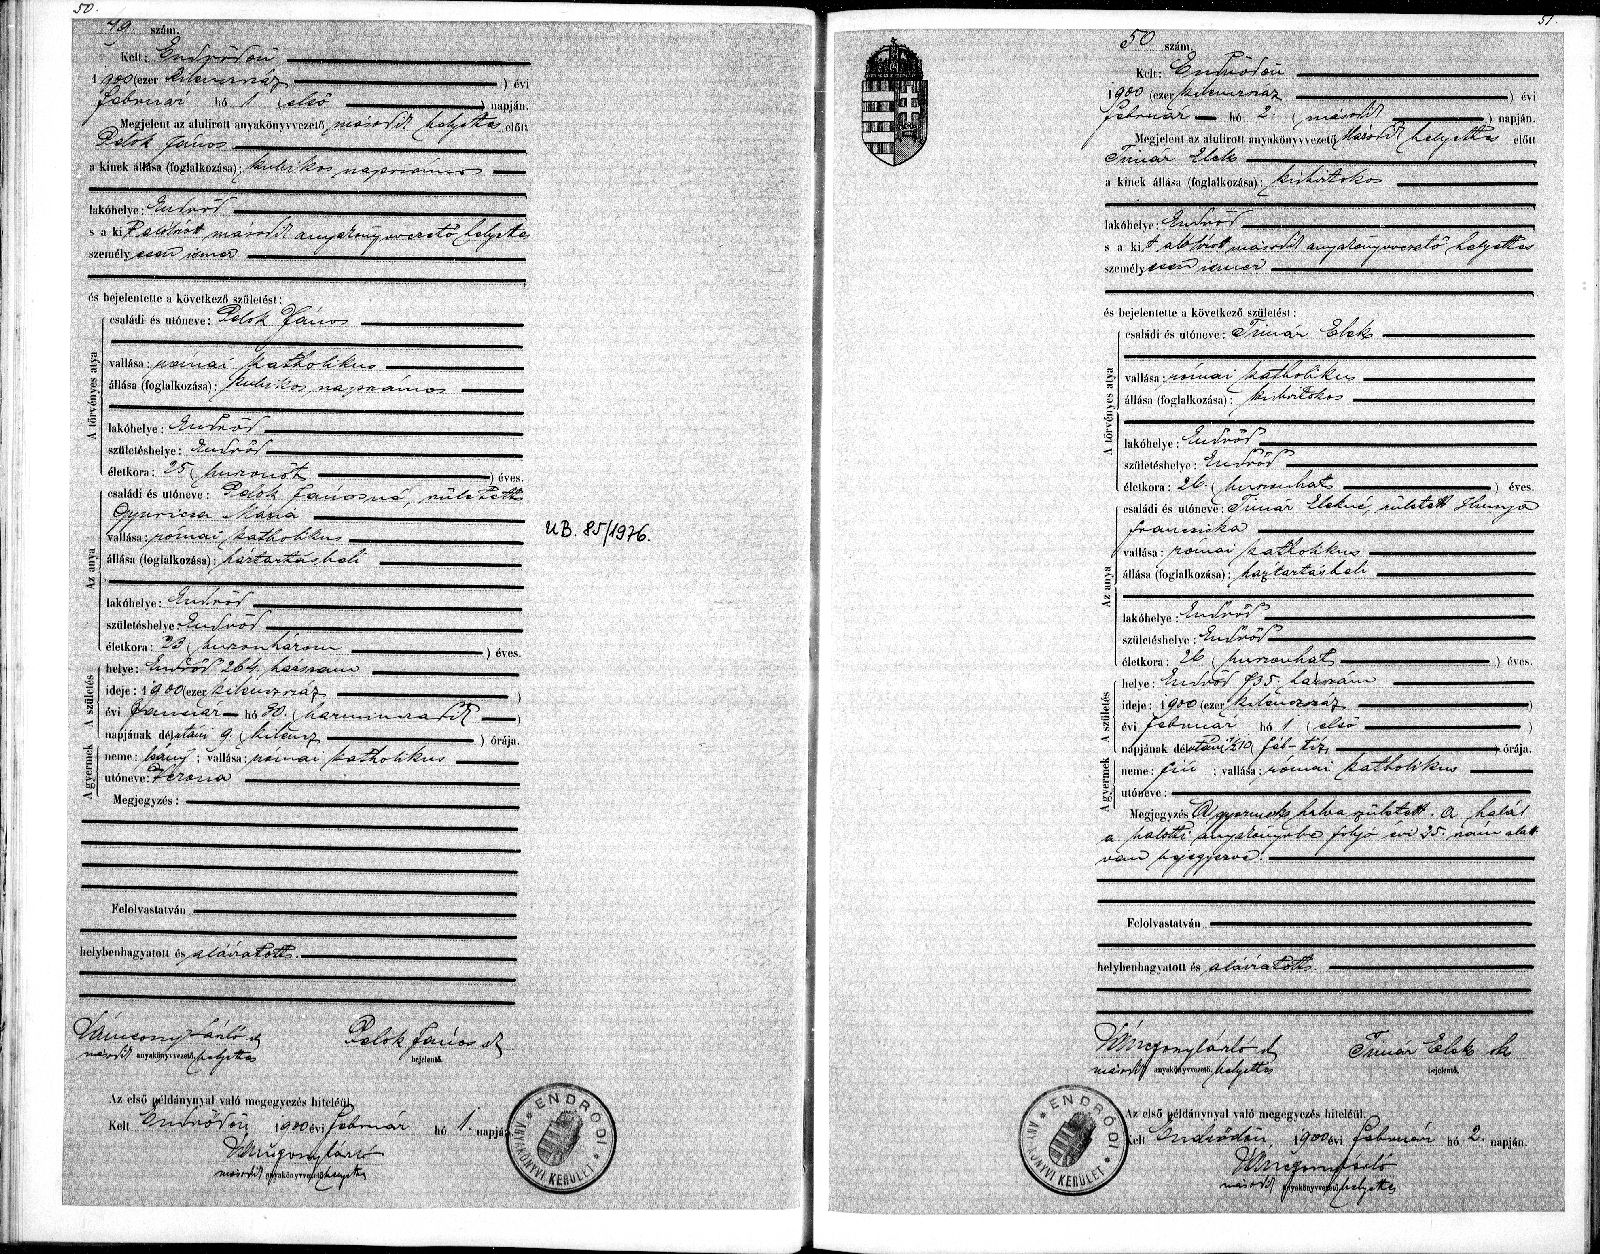 50.
49 szám.
Kelt: Endrődön
1900 (ezer kilenczszáz ) évi
február hó 1 (első ) napján.
Megjelent az alulirott anyakönyvvezető második helyettes előtt
Pelok János
a kinek állása (foglalkozása): kubikos napszámos
lakóhelye: Endrőd
s a kit alólirott második anyakönyvvezető helyettes
személyesen ismer
és bejelentette a következő születést:
A törvényes atya
családi és utóneve: Pelok János
vallása: római katholikus
állása (foglalkozása): kubikos napszámos
lakóhelye: Endrőd
születéshelye: Endrőd
életkora: 25 (huszonöt ) éves.
Az anya
családi és utóneve: Pelok Jánosné, született
Gyuricza Mária
vallása: római katholikus
állása (foglalkozása): háztartásbeli
lakóhelye: Endrőd
születéshelye: Endrőd
életkora: 23 (huszonhárom ) éves.
A születés
helye: Endrőd 264. házszám
ideje: 1900 (ezer kilenczszáz )
évi Január hó 30. (harminczadik )
napjának délutáni 9. (kilencz ) órája.
A gyermek
neme: leány; vallása: római katholikus
utóneve: Verona
Megjegyzés:
Felolvastatván
helybenhagyatott és aláiratott.
második anyakönyvvezető helyettes
Pelok János sk
bejelentő.
Az első példánynyal való megegyezés hiteléül.
Kelt Endrődön, 1900 évi február hó 1. napján.
második anyakönyvvezető helyettes
ENDRŐDI ANYAKÖNYVI KERÜLET
UB. 85/1976.
51.
50 szám.
Kelt: Endrődön
1900 (ezer kilenczszáz ) évi
február hó 2. (második ) napján.
Megjelent az alulirott anyakönyvvezető második helyettes előtt
Timár Elek
a kinek állása (foglalkozása): kisbirtokos
lakóhelye: Endrőd
s a kit alólirott második anyakönyvvezető helyettes
személyesen ismer
és bejelentette a következő születést:
A törvényes atya
családi és utóneve: Timár Elek
vallása: római katholikus
állása (foglalkozása): kisbirtokos
lakóhelye: Endrőd
születéshelye: Endrőd
életkora: 26. (huszonhat ) éves.
Az anya
családi és utóneve: Timár Elekné, született Hunya
Francziska
vallása: római katholikus
állása (foglalkozása): háztartásbeli
lakóhelye: Endrőd
születéshelye: Endrőd
életkora: 26 (huszonhat ) éves.
A születés
helye: Endrőd házszám
ideje: 1900 (ezer kilenczszáz )
évi február hó 1 (első )
napjának délutáni ½10 (fél-tíz ) órája.
A gyermek
neme: fiú; vallása: római katholikus
utóneve:
Megjegyzés: A gyermek halva született. A halál
a halotti anyakönyvbe folyó évi 25. szám alatt
van bejegyezve.
Felolvastatván
helybenhagyatott és aláiratott.
második anyakönyvvezető helyettes
Timár Elek sk
bejelentő.
Az első példánynyal való megegyezés hiteléül.
Kelt Endrődön, 1900 évi február hó 2. napján.
második anyakönyvvezető helyettes
ENDRŐDI ANYAKÖNYVI KERÜLET